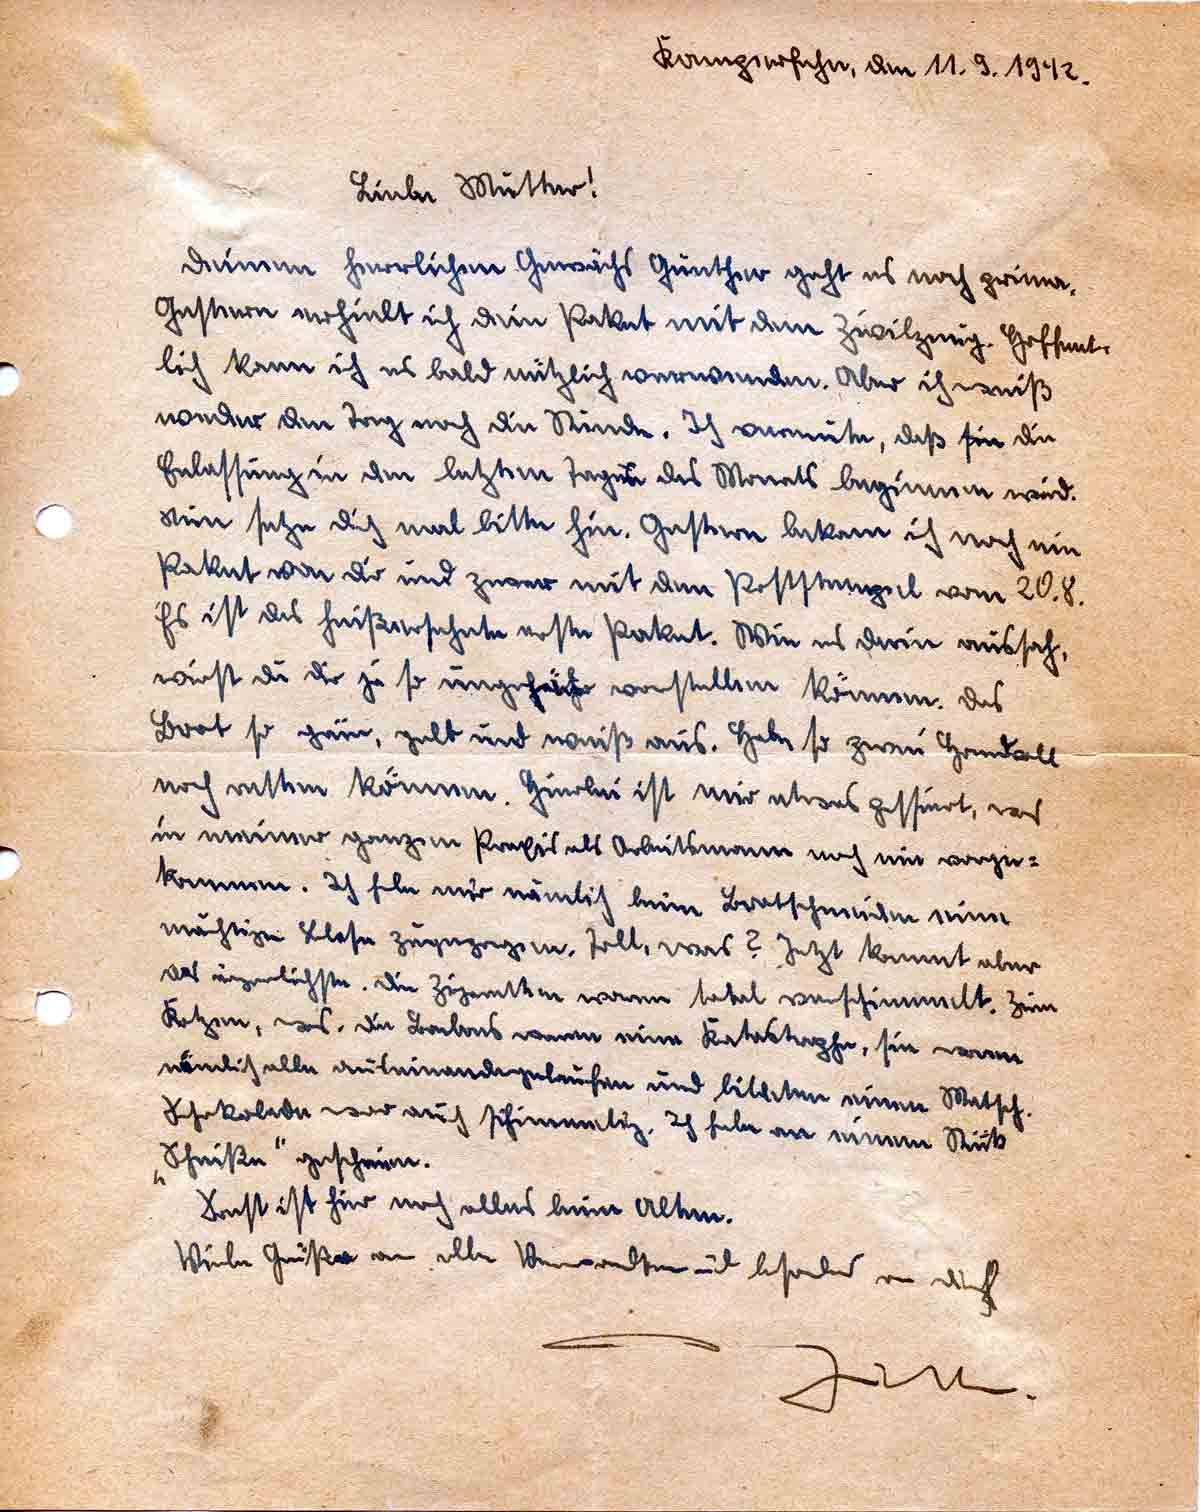 Kamperfehn, den 11. 9. 1942.
Liebe Mutter!
Deinem herrlichen Gewächs Günther geht es noch prima.
Gestern erhielt ich dein Paket mit dem Zivilzeug. Hoffent-
lich kann ich es bald nützlich verwenden. Aber ich weiß
weder den Tag noch die Stunde. Ich vermute, daß sie die
Enlassung in den letzten Tagen des Monats beginnen wird.
Nun setze dich mal bitte hin. Gestern bekam ich noch ein
Paket von dir und zwar mit dem Poststempel vom 20.8.
Es ist das heißersehnte erste Paket. Wie es darin aussah,
wirst du dir ja so ungefähr vorstellen können. Das
Brot so grün, gelb und weiß aus. Habe so zwei Handvoll
noch retten können. Hierbei ist mir etwas passiert, was
in meiner ganzen Praxis als Arbeitsmann noch nie vorge=
kommen. Ich habe mir nämlich beim Brotschneiden eine
mächtige Blase zugezogen. Toll, was? Jetzt kommt aber
das ärgerlichste. Die Zigaretten waren total verschimmelt. Zum
Kotzen, was. Die Bonbons waren eine Katastrophe, sie waren
nämlich alle auseinandegelaufen und bildeten einen Matsch.
Schokolade war auch schimmelig. Ich habe an einem Stük
„Scheiße“ geschrien.
Sonst ist hier noch alles beim Alten.
Viele Grüße an alle Verwandten und besonders an dich